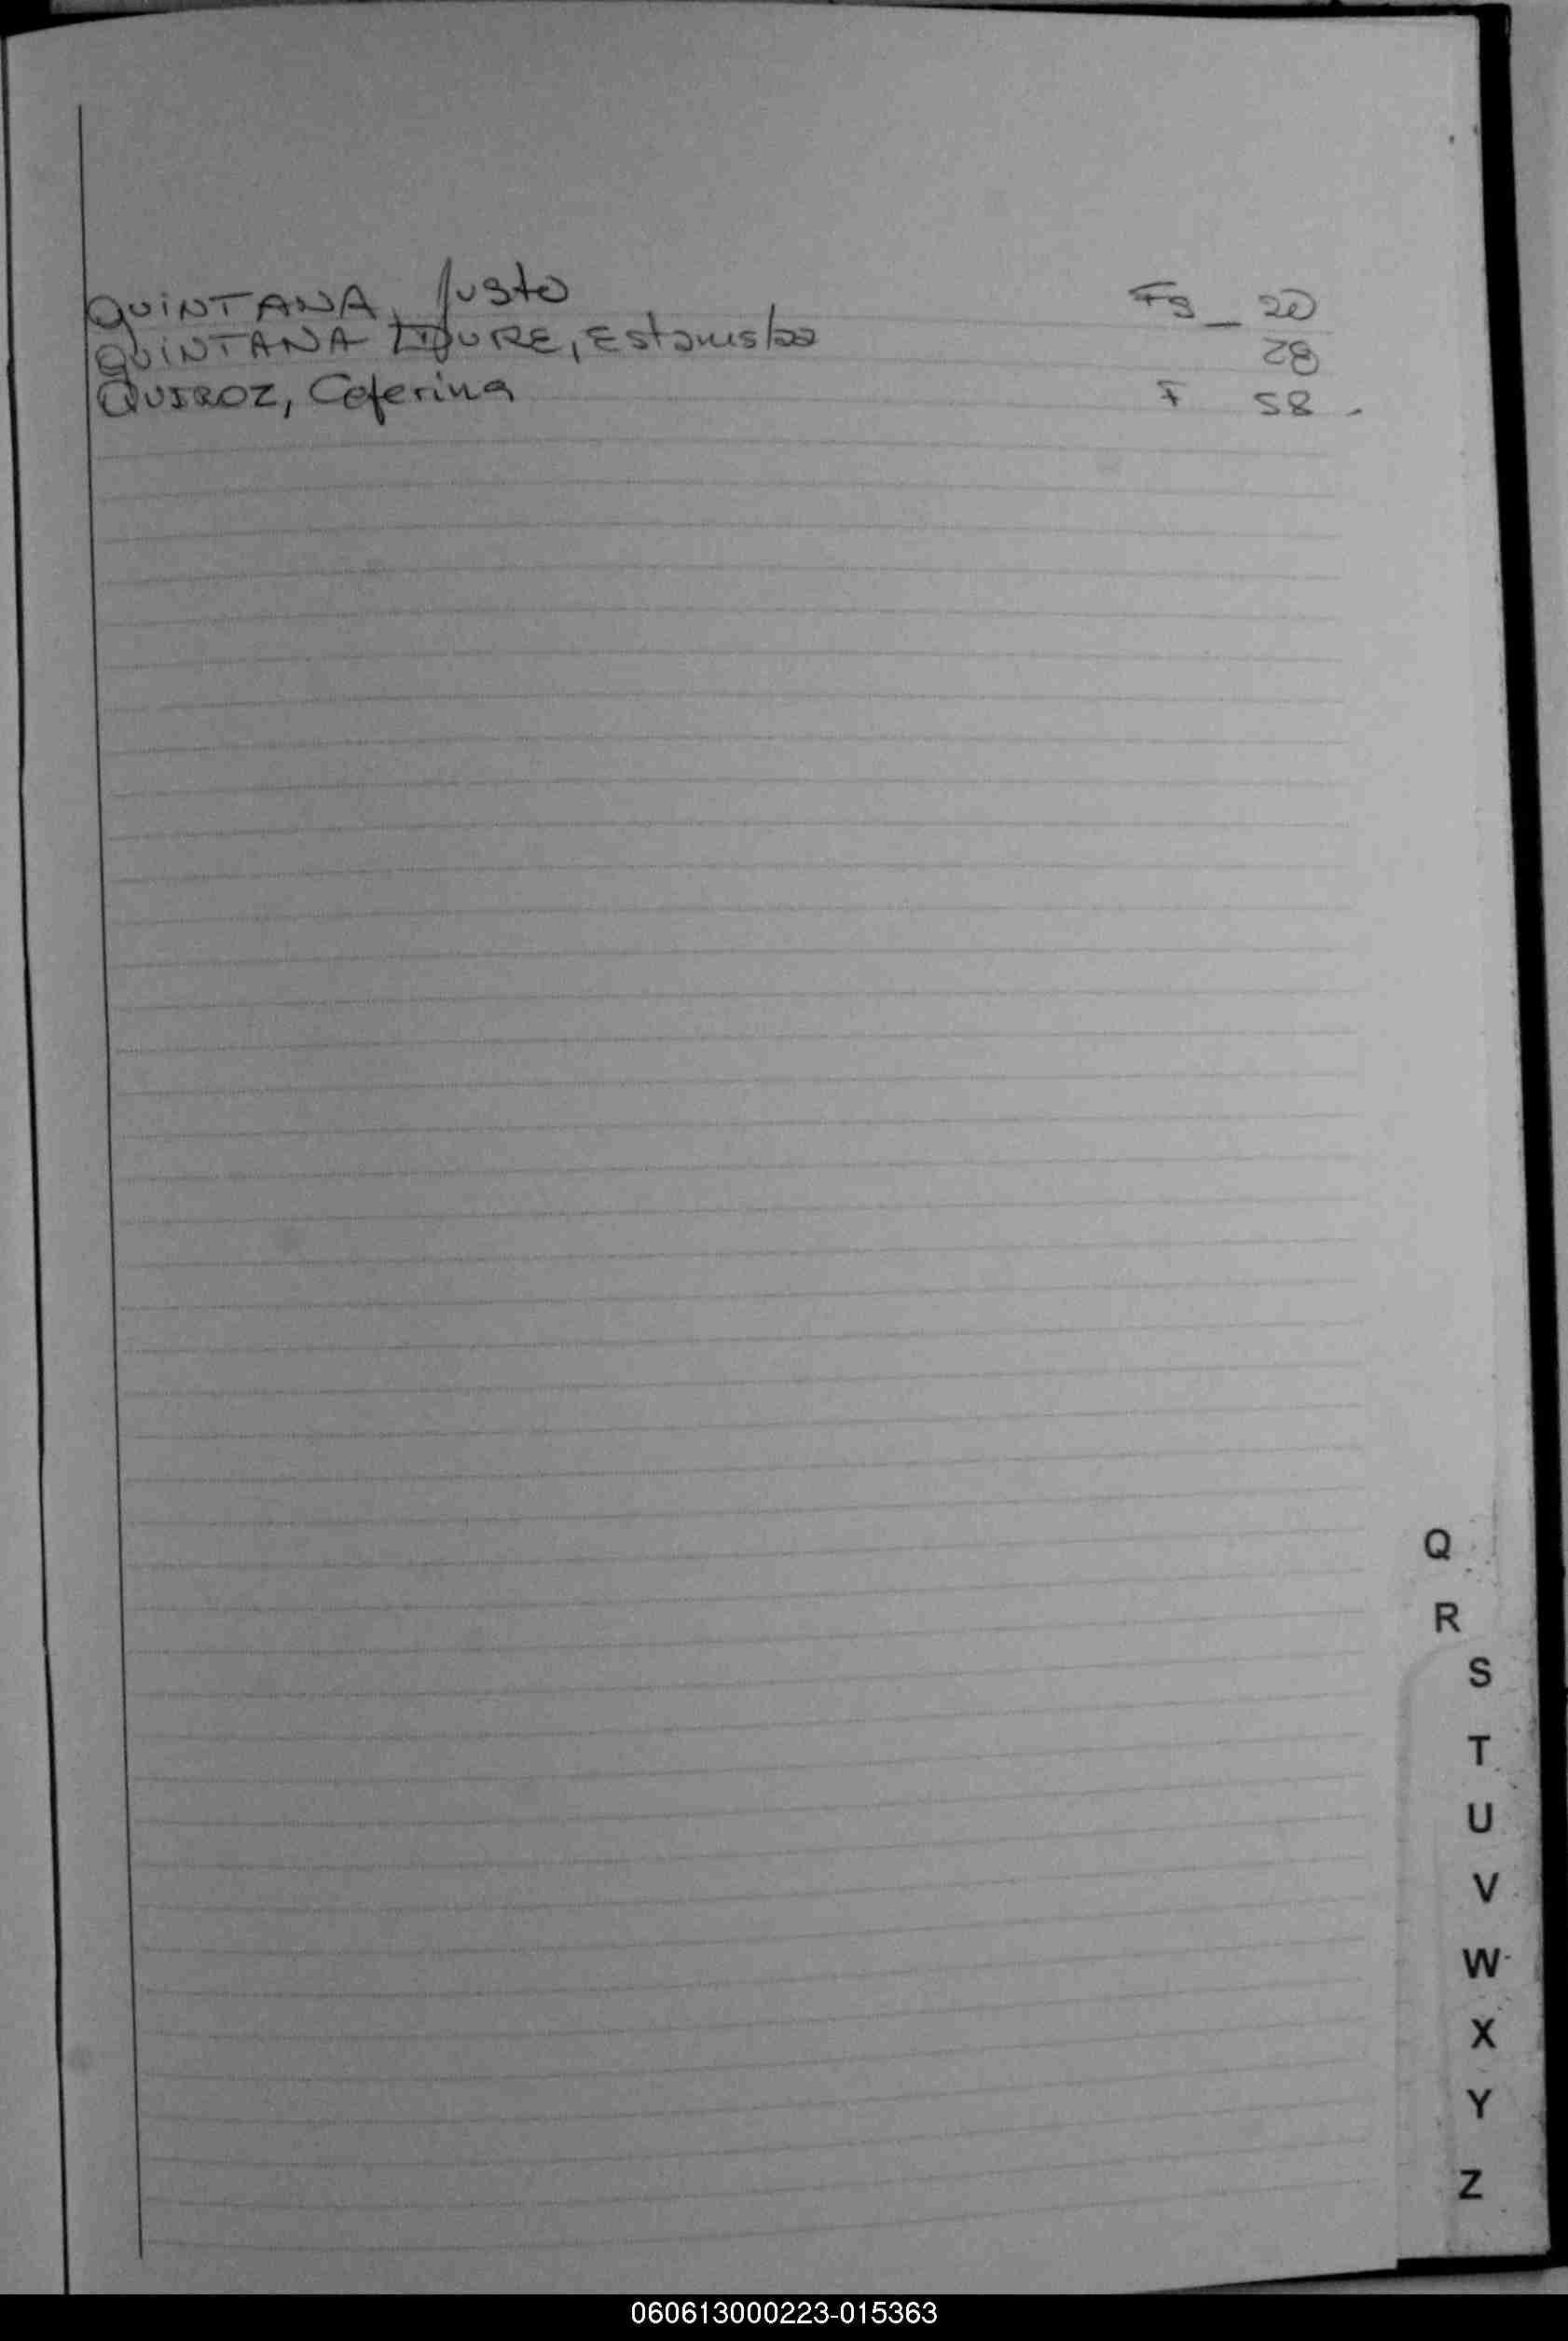 QUINTANA, Justo Fs _ 20
QUINTANA, Estanislao 28
QUIROZ, Ceferina F 58 .
Q
R
S
T
U
V
W
X
Y
Z
060613000223-015363